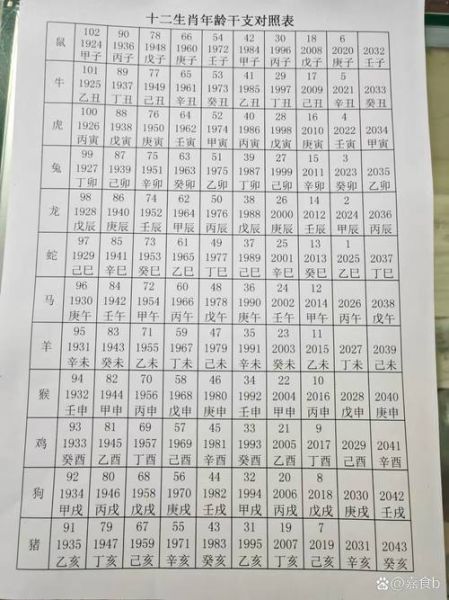 十二生肖年龄干支对照表
102 90 78 66 54 42 30 18 6
鼠 1924 1936 1948 1960 1972 1984 1996 2008 2020 2032
甲子 丙子 戊子 庚子 壬子 甲子 丙子 戊子 庚子 壬子
101 89 77 65 53 41 29 17 5
牛 1925 1937 1949 1961 1973 1985 1997 2009 2021 2033
乙丑 丁丑 己丑 辛丑 癸丑 乙丑 丁丑 己丑 辛丑 癸丑
100 88 76 64 52 40 28 16 4
虎 1926 1938 1950 1962 1974 1986 1998 2010 2022 2034
丙寅 戊寅 庚寅 壬寅 甲寅 丙寅 戊寅 庚寅 壬寅 甲寅
99 87 75 63 51 39 27 15 3
兔 1927 1939 1951 1963 1975 1987 1999 2011 2023 2035
丁卯 己卯 辛卯 癸卯 乙卯 丁卯 己卯 辛卯 癸卯 乙卯
98 86 74 62 50 38 26 14 2
龙 1928 1940 1952 1964 1976 1988 2000 2012 2024 2036
戊辰 庚辰 壬辰 甲辰 丙辰 戊辰 庚辰 壬辰 甲辰 丙辰
97 85 73 61 49 37 25 13 1
蛇 1929 1941 1953 1965 1977 1989 2001 2013 2025 2037
己巳 辛巳 癸巳 乙巳 丁巳 己巳 辛巳 癸巳 乙巳 丁巳
96 84 72 60 48 36 24 12
马 1930 1942 1954 1966 1978 1990 2002 2014 2026 2038
庚午 壬午 甲午 丙午 戊午 庚午 壬午 甲午 丙午 戊午
95 83 71 59 47 35 23 11
羊 1931 1943 1955 1967 1979 1991 2003 2015 2027 2039
辛未 癸未 乙未 丁未 己未 辛未 癸未 乙未 丁未 己未
94 82 70 58 46 34 22 10
猴 1932 1944 1956 1968 1980 1992 2004 2016 2028 2040
壬申 甲申 丙申 戊申 庚申 壬申 甲申 丙申 戊申 庚申
93 81 69 57 45 33 21 9
鸡 1933 1945 1957 1969 1981 1993 2005 2017 2029 2041
癸酉 乙酉 丁酉 己酉 辛酉 癸酉 乙酉 丁酉 己酉 辛酉
92 80 68 56 44 32 20 8
狗 1934 1946 1958 1970 1982 1994 2006 2018 2030 2042
甲戌 丙戌 戊戌 庚戌 壬戌 甲戌 丙戌 戊戌 庚戌 壬戌
91 79 67 55 43 31 19 7
猪 1935 1947 1959 1971 1983 1995 2007 2019 2031 2043
乙亥 丁亥 己亥 辛亥 癸亥 乙亥 丁亥 己亥 辛亥 癸亥
@嘉食b